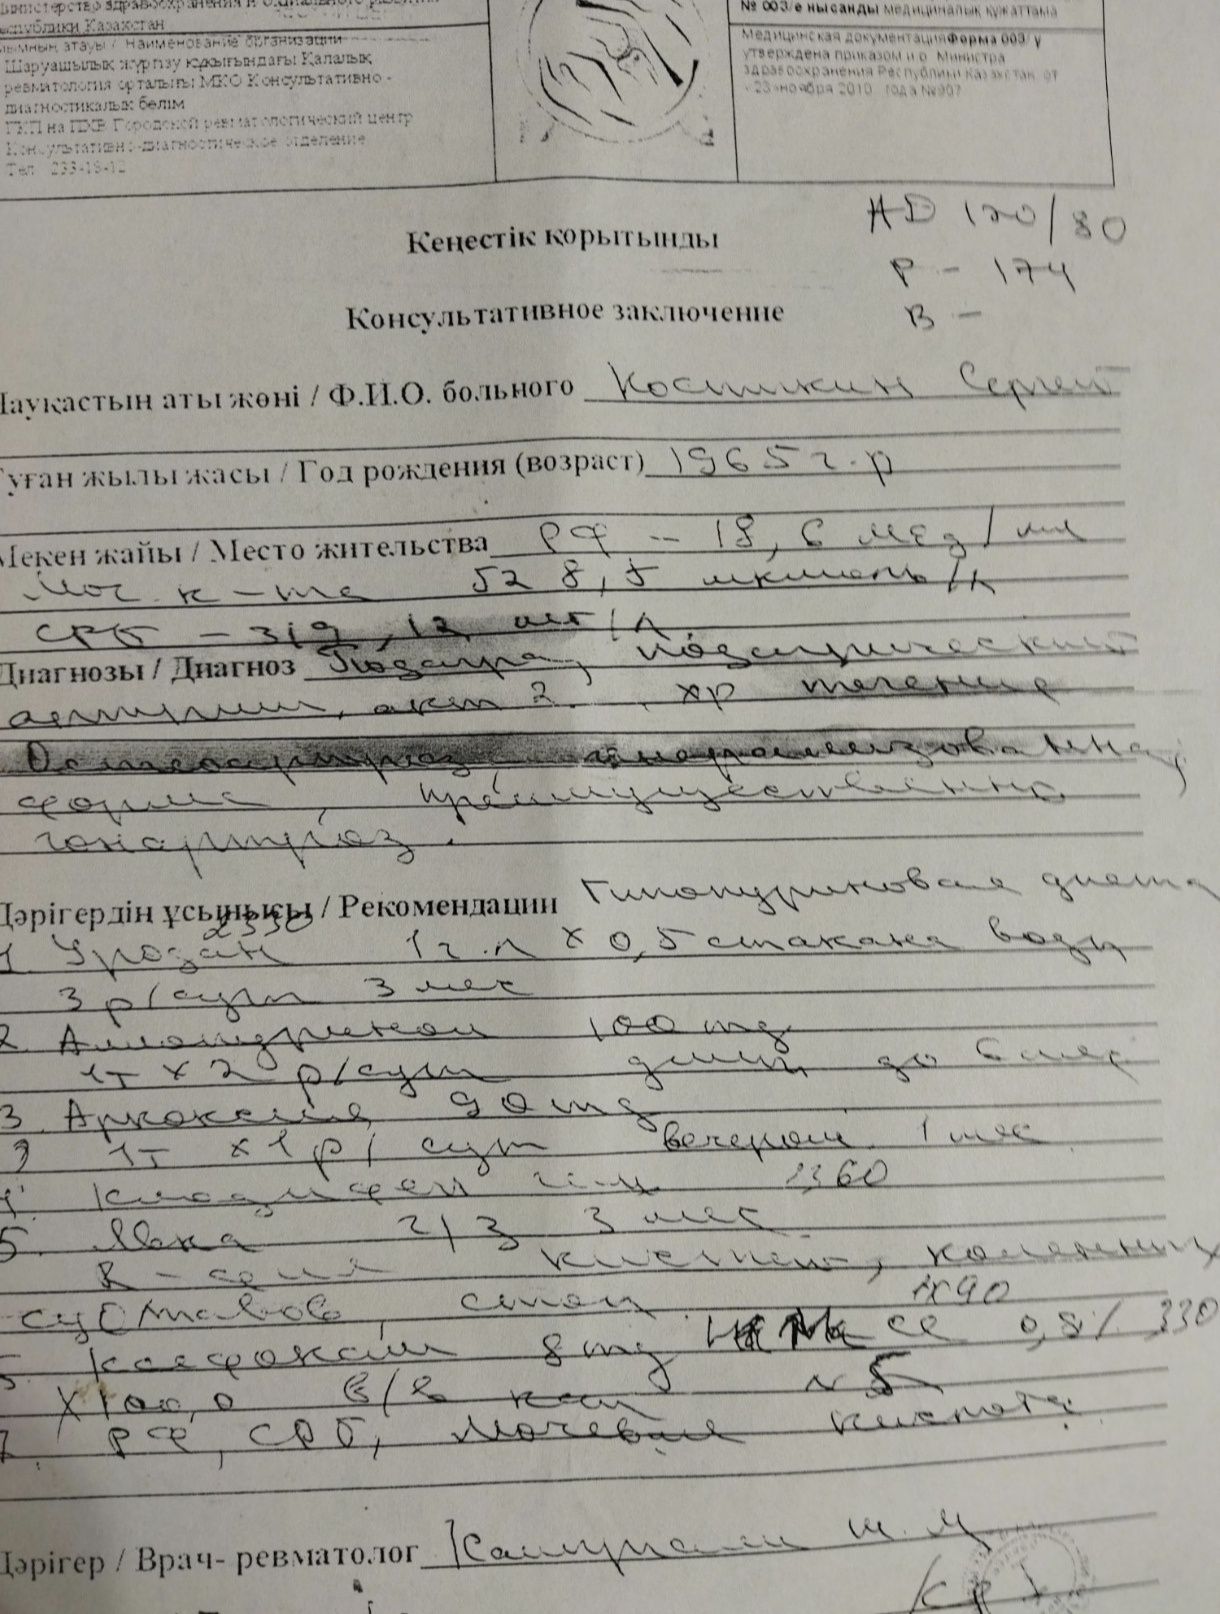 Министерство здравоохранения и социального развития
Республики Казахстан
Наименование организации
Шаруашылық жүргізу құқығындағы Қалалық
ревматология орталығы МКО Консультативно -
диагностикалық бөлім
ГКП на ПХВ Городской ревматологический центр
Консультативно-диагностическое отделение
Тел 233-18-12
№ 003/е нысанды медициналық құжаттама
Медицинская документация Форма 003/у
утверждена приказом и.о. Министра
здравоохранения Республики Казахстан от
«23» ноября 2010 года №907
АД 120/80
Р - 174
В -
Кеңестік қорытынды
Консультативное заключение
Науқастың аты жөні / Ф.И.О. больного Костикин Сергей
Туған жылы жасы / Год рождения (возраст) 1965 г.р
Мекен жайы / Место жительства РФ - 18,6 мед/мл
Моч. к-та 528,5 мкмоль/л
СРБ - 12 мг/л
Диагнозы / Диагноз Подагра, подагрический
артрит, акт 2. хр течение
Остеоартроз, генерализованная
форма, преимущественно
гонартроз.
Дәрігердің ұсынысы / Рекомендации Гипопуриновая диета
2330
1. Уродан 1 ч.л х 0,5 стакана воды
3 р/сут 3 мес
2. Аллопуринол 100 mg
1т х 2 р/сут длит. до 6 мес
3. Аркоксиа 90 mg
1т х 1 р/сут вечером 1 мес
1360
5. Явка ч/з 3 мес
R- кистей, коленных
суставов, стоп
1890
Ксефокам 8 mg 330
х 100,0 в/в кап №5
7. РФ, СРБ, Мочевая кислота
Дәрігер / Врач- ревматолог